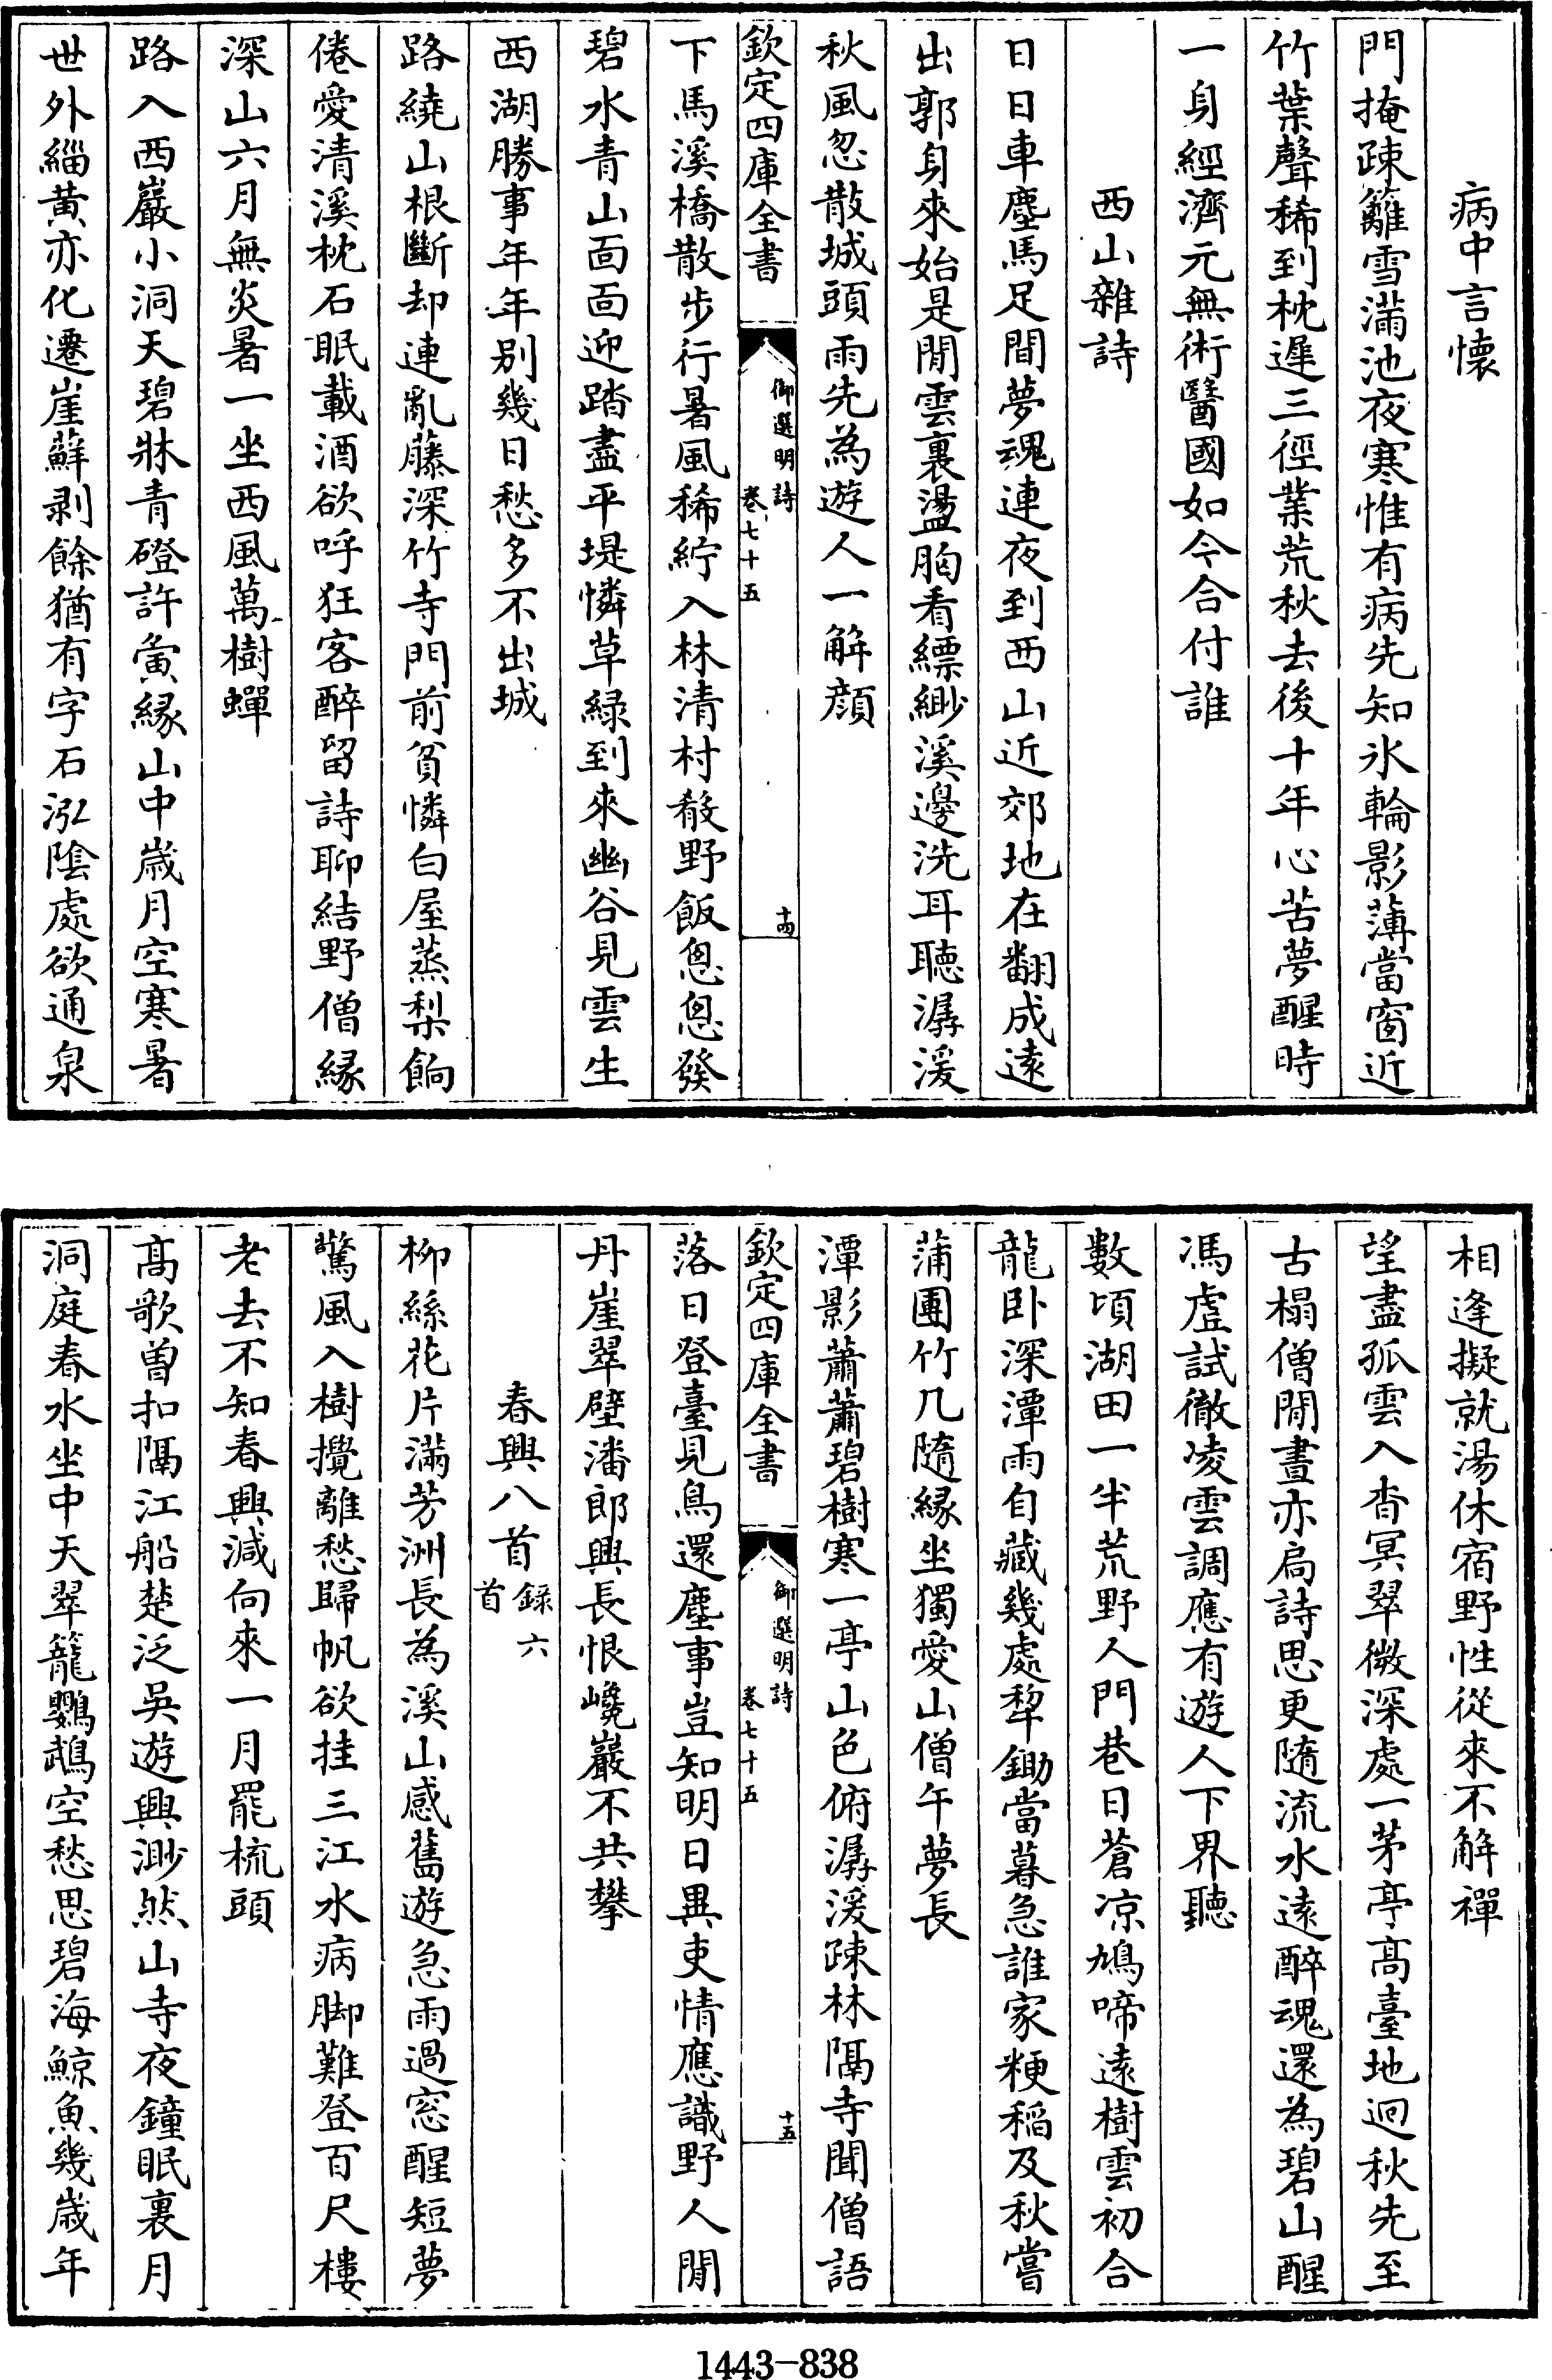 病中言懐
門掩疎籬雪滿池夜寒惟有病先知氷輪影薄當窗近
竹葉聲稀到枕遲三徑業荒秋去後十年心苦夢醒時
一身經濟元無術醫國如今合付誰
西山雜詩
日日車塵馬足間夢魂連夜到西山近郊地在翻成遠
出郭身來始是閒雲裏盪胸看縹緲溪邊洗耳聽潺湲
秋風忽散城頭雨先為遊人一解顔
欽定四庫全書
御選明詩
卷七十五
十四
下馬溪橋散步行暑風稀紵入林清村殽野飯怱怱發
碧水青山面面迎踏盡平堤憐草緑到來幽谷見雲生
西湖勝事年年别幾日愁多不出城
路繞山根斷却連亂藤深竹寺門前貧憐白屋蒸梨餉
倦愛清溪枕石眠載酒欲呼狂客醉留詩聊結野僧縁
深山六月無炎暑一坐西風萬樹蟬
路入西巖小洞天碧牀青磴許夤緣山中歳月空寒暑
世外緇黄亦化遷崖蘚剥餘猶有字石泓陰處欲通泉
相逢擬就湯休宿野性從來不解禪
望盡孤雲入杳冥翠微深處一茅亭高臺地迥秋先至
古榻僧閒晝亦扃詩思更隨流水遠醉魂還為碧山醒
馮虛試徹凌雲調應有遊人下界聽
數頃湖田一半荒野人門巷日蒼凉鳩啼遠樹雲初合
龍卧深潭雨自藏幾處犂鋤當暮急誰家粳稻及秋嘗
蒲團竹几隨縁坐獨愛山僧午夢長
潭影蕭蕭碧樹寒一亭山色俯潺湲疎林隔寺聞僧語
欽定四庫全書
御選明詩
卷七十五
十五
落日登臺見鳥還塵事豈知明日異吏情應識野人閒
丹崖翠壁潘郎興長恨巉巖不共攀
春興八首錄六首
柳絲花片滿芳洲長為溪山感舊遊急雨過窓醒短夢
驚風入樹攪離愁歸帆欲挂三江水病脚難登百尺樓
老去不知春興減向來一月罷梳頭
高歌曽扣隔江船楚泛吳遊興渺然山寺夜鐘眠裏月
洞庭春水坐中天翠籠鸚鵡空愁思碧海鯨魚幾歳年
1443-838